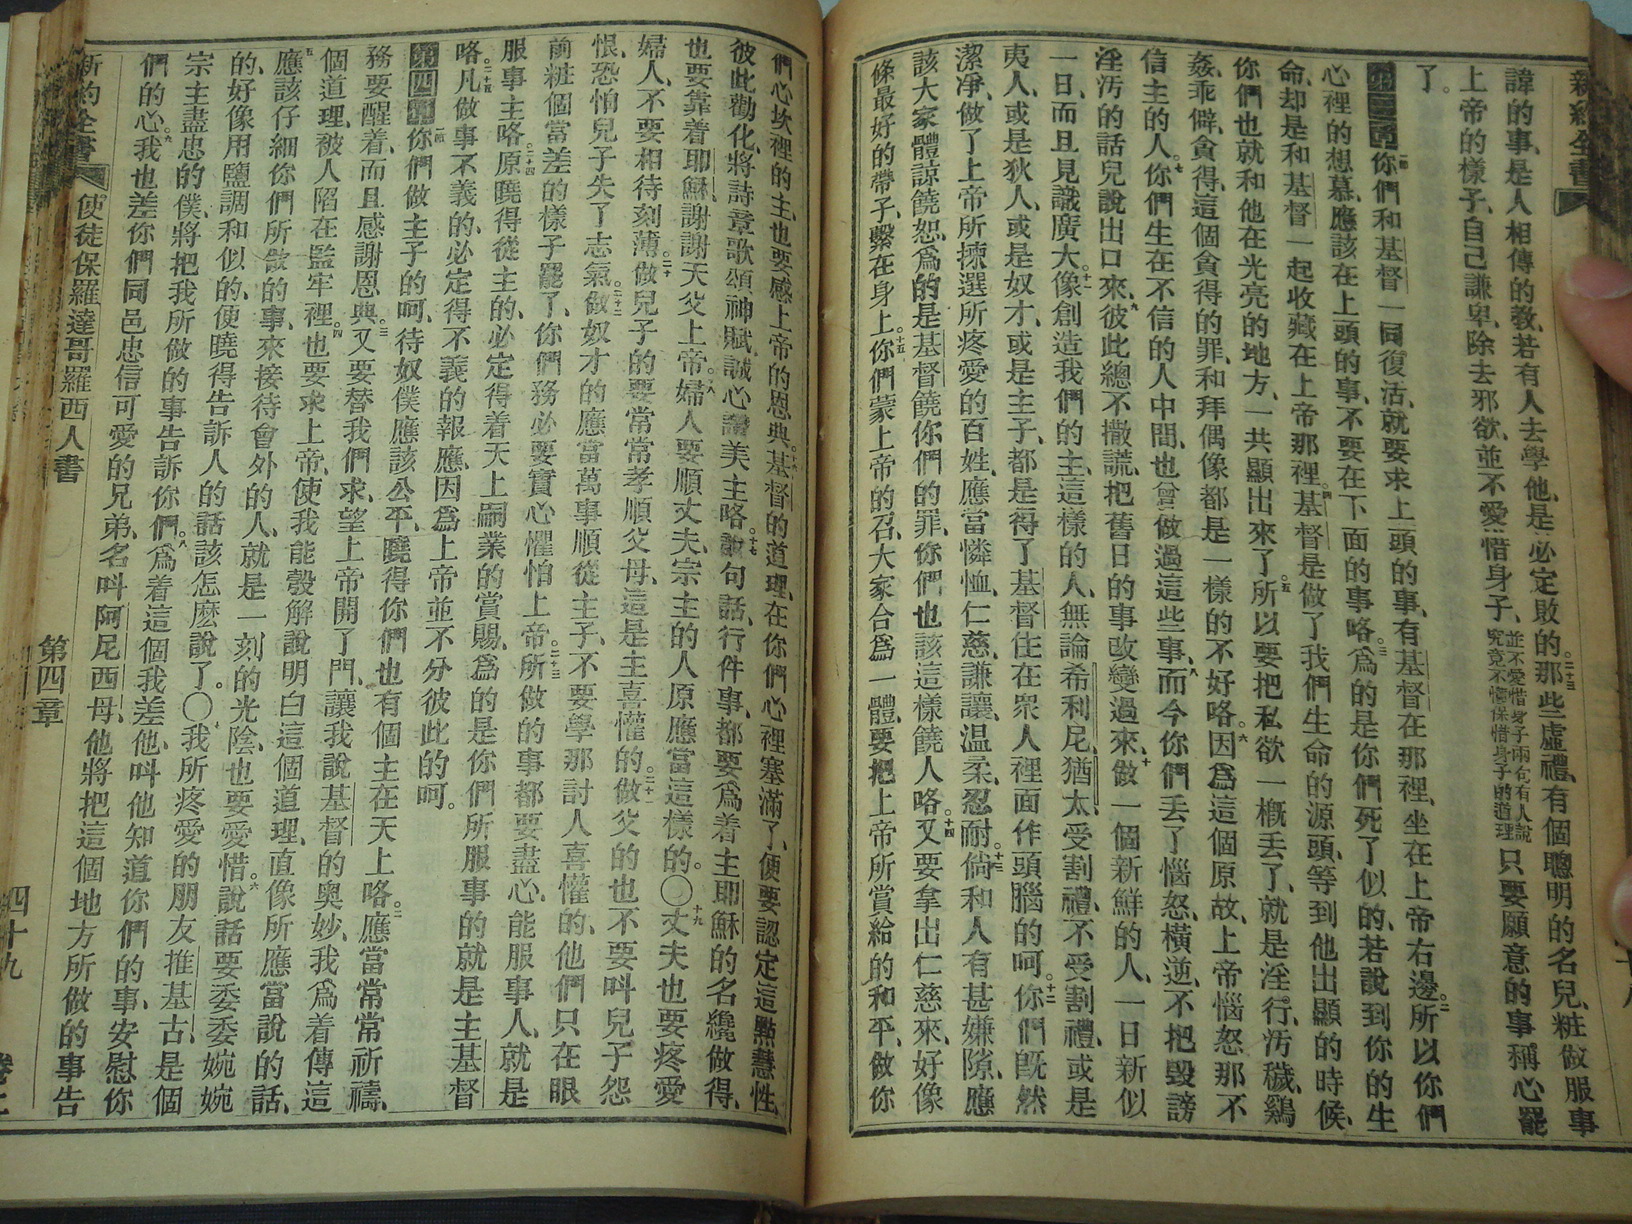 新約全書
諱的事、是人相傳的教、若有人去學他、是必定敗的。二十三那些虛禮、有個聰明的名兒、粧做服事
上帝的樣子、自己謙卑、除去邪欲、並不愛惜身子、並不愛惜身子兩句有人說究竟不懂保惜身子的道理只要願意的事稱心罷
了。
第三章一節你們和基督一同復活、就要求上頭的事、有基督在那裡、坐在上帝右邊。二所以你們
心裡的想慕、應該在上頭的事、不要在下面的事咯。三爲的是你們死了似的、若說到你的生
命、却是和基督一起收藏在上帝那裡。四基督是做了我們生命的源頭、等到他出顯的時候、
你們也就和他在光亮的地方、一共顯出來了。五所以要把私欲一槪丟了、就是淫行、汚穢、鷄
姦、乖僻、貪得、這個貪得的罪、和拜偶像都是一樣的不好咯。六因爲這個原故、上帝惱怒那不
信主的人。七你們生在不信的人中間、也曾做過這些事、八而今你們丟了惱怒、橫逆、不把毀謗
淫汚的話兒說出口來、九彼此總不撒謊、把舊日的事改變過來、十做一個新鮮的人、一日新似
一日、而且見識廣大、十一像創造我們的主、這樣的人、無論希利尼、猶太、受割禮、不受割禮、或是
夷人、或是狄人、或是奴才、或是主子、都是得了基督住在衆人裡面作頭腦的呵。十二你們旣然
潔凈、做了上帝所揀選所疼愛的百姓、應當憐恤、仁慈、謙讓、温柔、忍耐。十三倘和人有甚嫌隙、應
該大家體諒饒恕、爲的是基督饒你們的罪、你們也該這樣饒人咯。十四又要拿出仁慈來、好像
條最好的帶子、繫在身上。十五你們蒙上帝的召、大家合爲一體、要把上帝所賞給的和平、做你
們心坎裡的主、也要感上帝的恩典。十六基督的道理、在你們心裡塞滿了、便要認定這點慧性、
彼此勸化、將詩章歌頌神賦、誠心讚美主咯。十七說句話、行件事、都要爲着主耶穌的名纔做得、
也要靠着耶穌、謝謝天父上帝。十八婦人要順丈夫、宗主的人原應當這樣的。○十九丈夫也要疼愛
婦人、不要相待刻薄。二十做兒子的要常常孝順父母、這是主喜懽的。二十一做父的也不要呌兒子怨
恨、恐怕兒子失了志氣。二十二做奴才的應當萬事順從主子、不要學那討人喜懽的、他們只在眼
前粧個當差的樣子罷了、你們務必要實心懼怕上帝。二十三所做的事都要盡心、能服事人、就是
服事主咯。二十四原曉得從主的、必定得着天上嗣業的賞賜、爲的是你們所服事的就是主基督
咯。二十五凡做事不義的、必定得不義的報應、因爲上帝並不分彼此的呵。
第四章一節你們做主子的呵、待奴僕應該公平、曉得你們也有個主在天上咯。二應當常常祈禱、
務要醒着、而且感謝恩典。三又要替我們求、望上帝開了門、讓我說基督的奧妙、我爲着傳這
個道理、被人陷在監牢裡。四也要求上帝、使我能彀解說明白這個道理、直像所應當說的話、
五應該仔細你們所做的事、來接待會外的人、就是一刻的光陰、也要愛惜。六說話要委委婉婉
的、好像用鹽調和似的、便曉得告訴人的話該怎麽說了。○七我所疼愛的朋友推基古、是個
宗主盡忠的僕、將把我所做的事告訴你們。八爲着這個我差他、呌他知道你們的事、安慰你
們的心。九我也差你們同邑忠信可愛的兄弟、名呌阿尼西母、他將把這個地方所做的事告
新約全書
使徒保羅達哥羅西人書
第四章
四十九